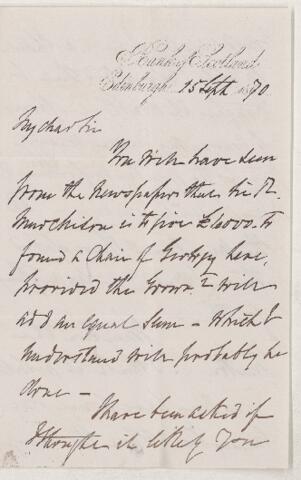 Bank of Scotland
Edinburgh 15 Sept 1870
My dear Sir
You will have seen
from the Newspapers that Sir R.
Murchison is to give £6000 to
found a Chair of Geology here,
provided the Governt will
add an equal sum – which I
understand will probably be
done –
I have been asked if
I thought it likely you